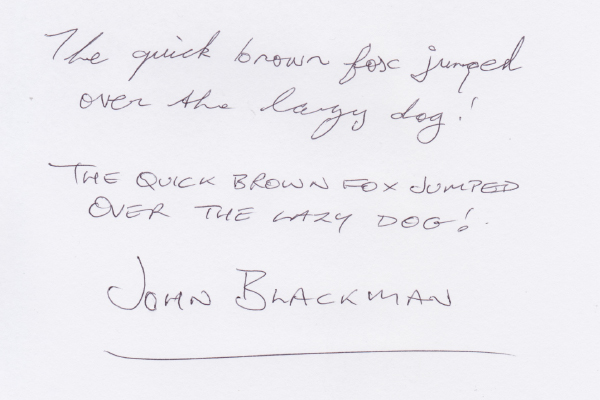 The quick brown fox jumped
over the lazy dog!
THE QUICK BROWN FOX JUMPED
OVER THE LAZY DOG!
JOHN BLACKMAN